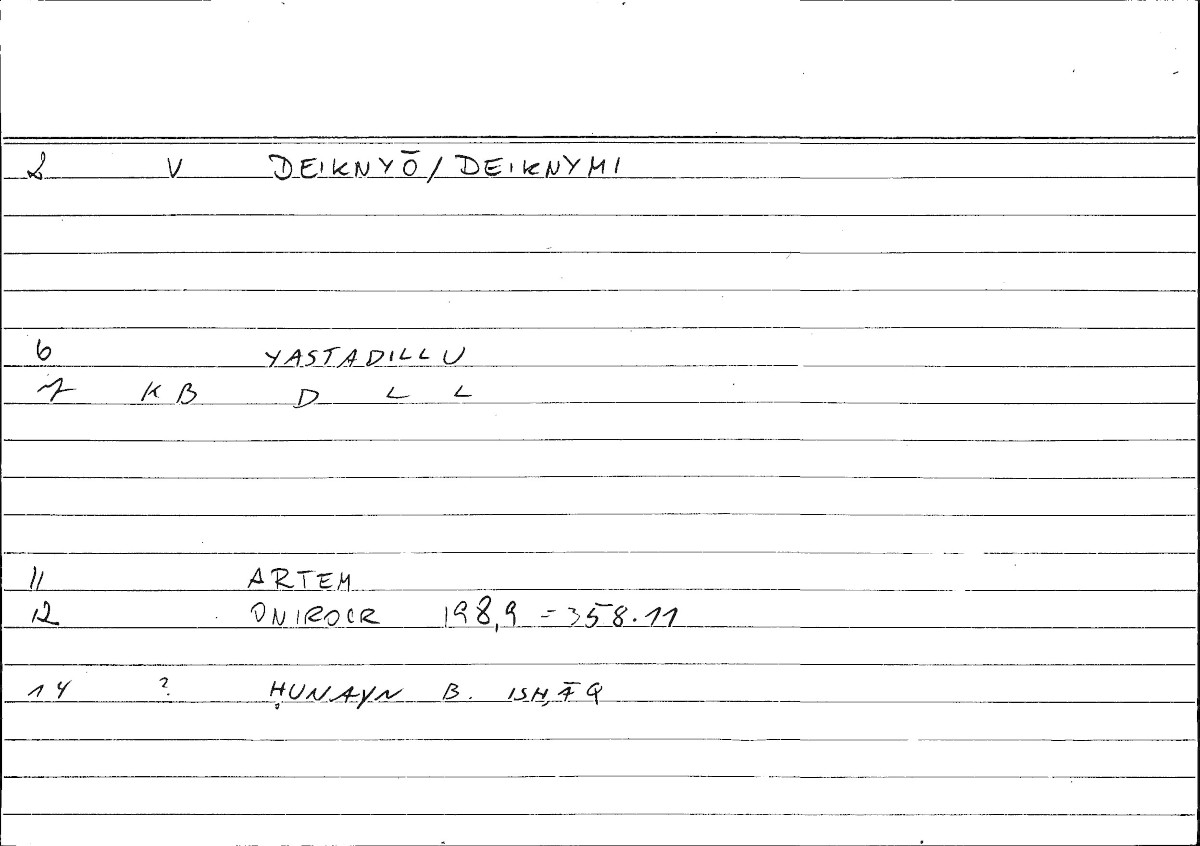 2 V DEIKNYŌ / DEIKNYMI
6 YASTADILLU
7 K B D L L
11 ARTEM
12 ONIROCR 198,9 = 358.11
14 ? ḤUNAYN B. ISḤĀQ